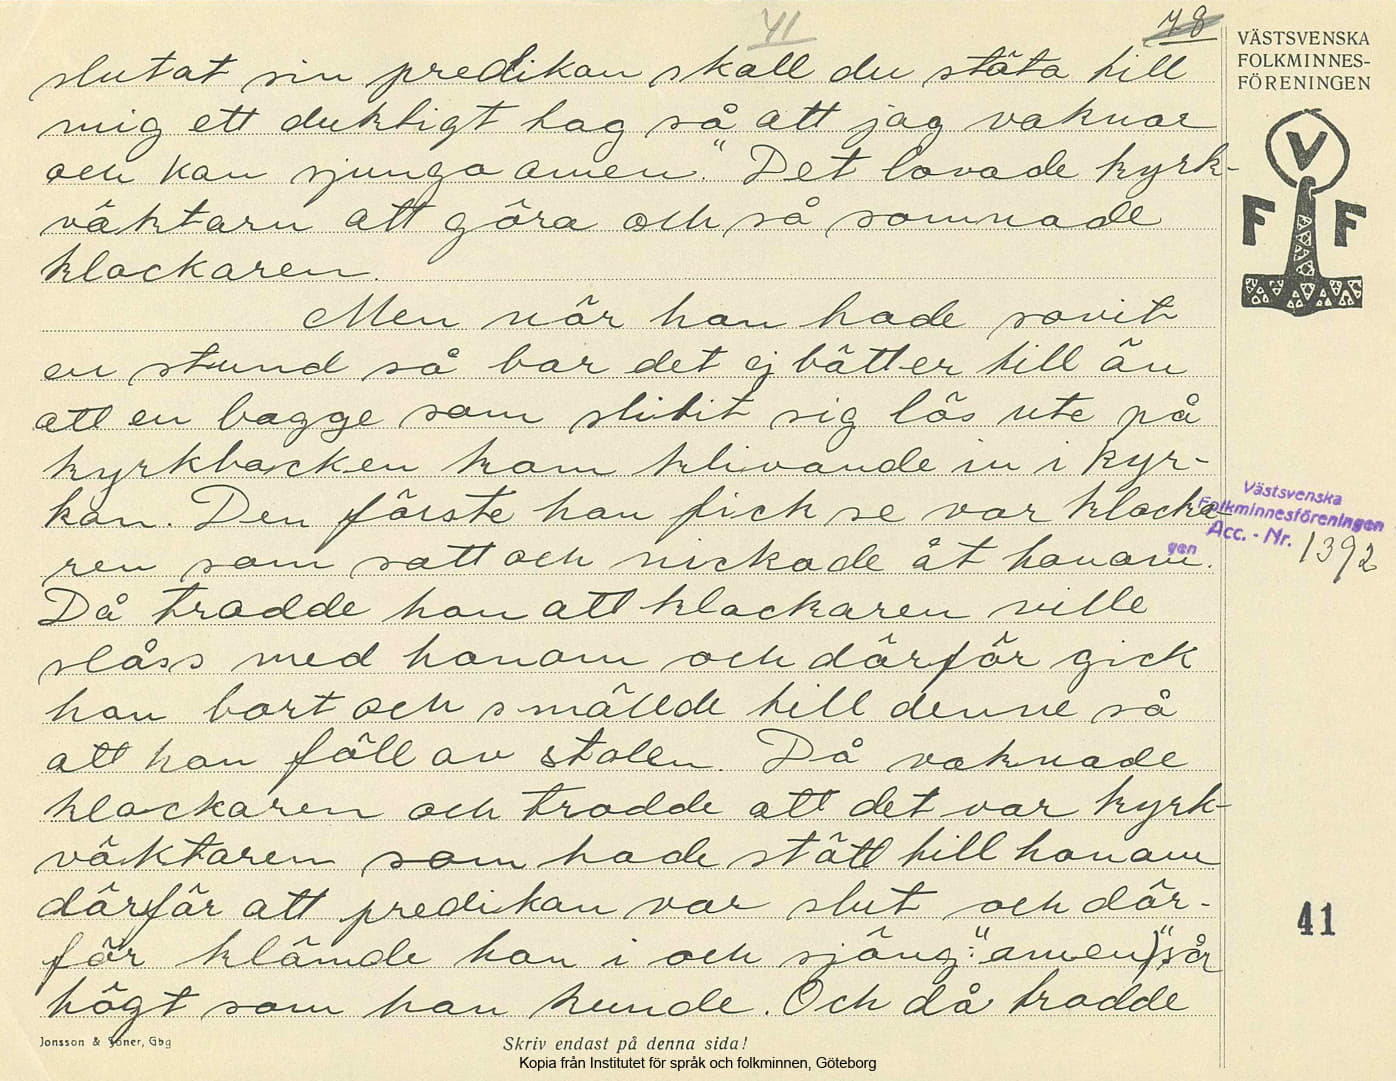 41
78
slutat sin predikan skall du stöta till
mig ett duktigt tag så att jag vaknar
och kan sjunga amen." Det lovade kyrk-
väktarn att göra och så somnade
klockaren.
Men när han hade sovit
en stund så bar det ej bätter till än
att en bagge som slitit sig lös ute på
kyrkbacken kom klivande in i kyr-
kan. Den förste han fick se var klocka-
ren som satt och nickade åt honom.
Då trodde han att klockaren ville
slåss med honom och därför gick
han bort och smällde till denne så
att han föll av stolen. Då vaknade
klockaren och trodde att det var kyrk-
väktaren som hade stött till honom
därför att predikan var slut och där-
för klämde han i och sjöng: "amen", så
högt som han kunde. Och då trodde
VÄSTSVENSKA
FOLKMINNES-
FÖRENINGEN
V
F F
Västsvenska
Folkminnesföreningen
Acc. - Nr. 1392
gen
41
Jonsson & Söner, Gbg
Skriv endast på denna sida!
Kopia från Institutet för språk och folkminnen, Göteborg